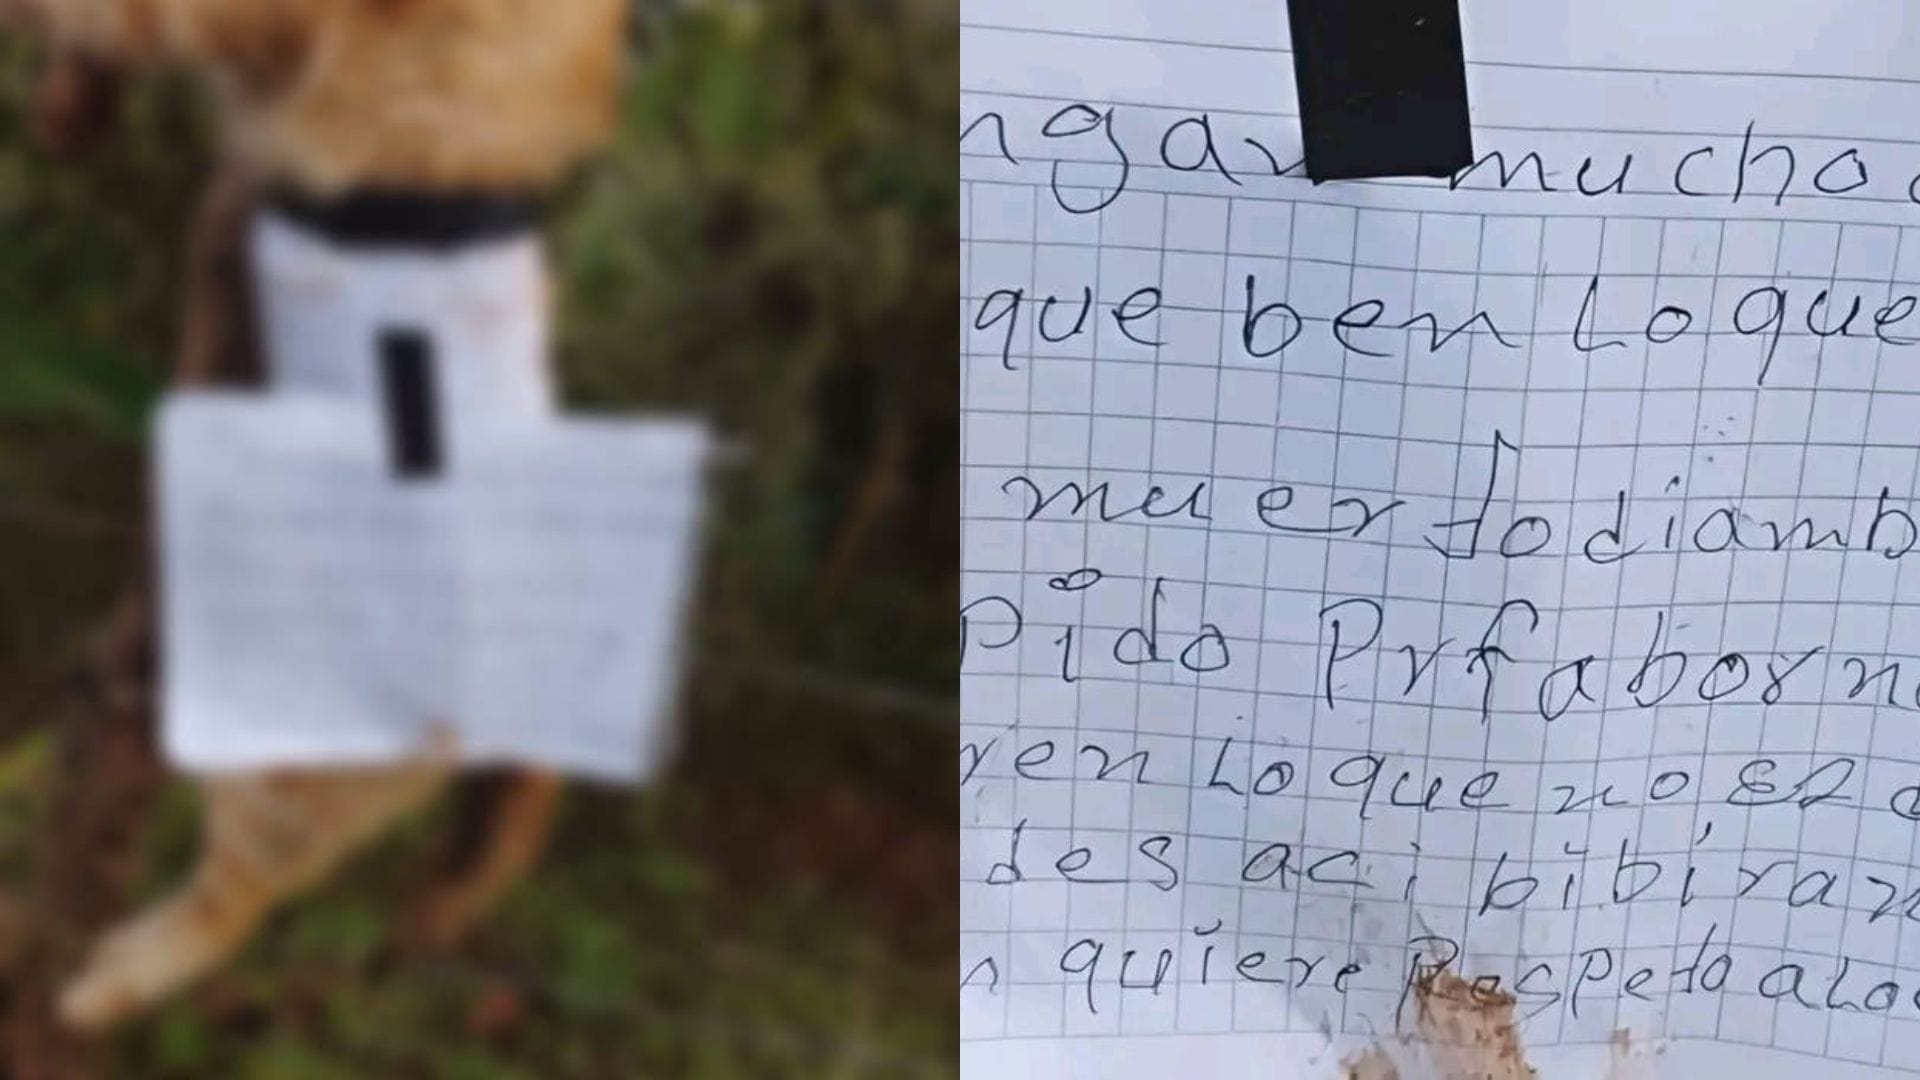 ngan mucho
que ben Lo que
muerto diamb
pido Prfabor n
ren Lo que no es
des aci bibiran
n quiere Respeto aLo